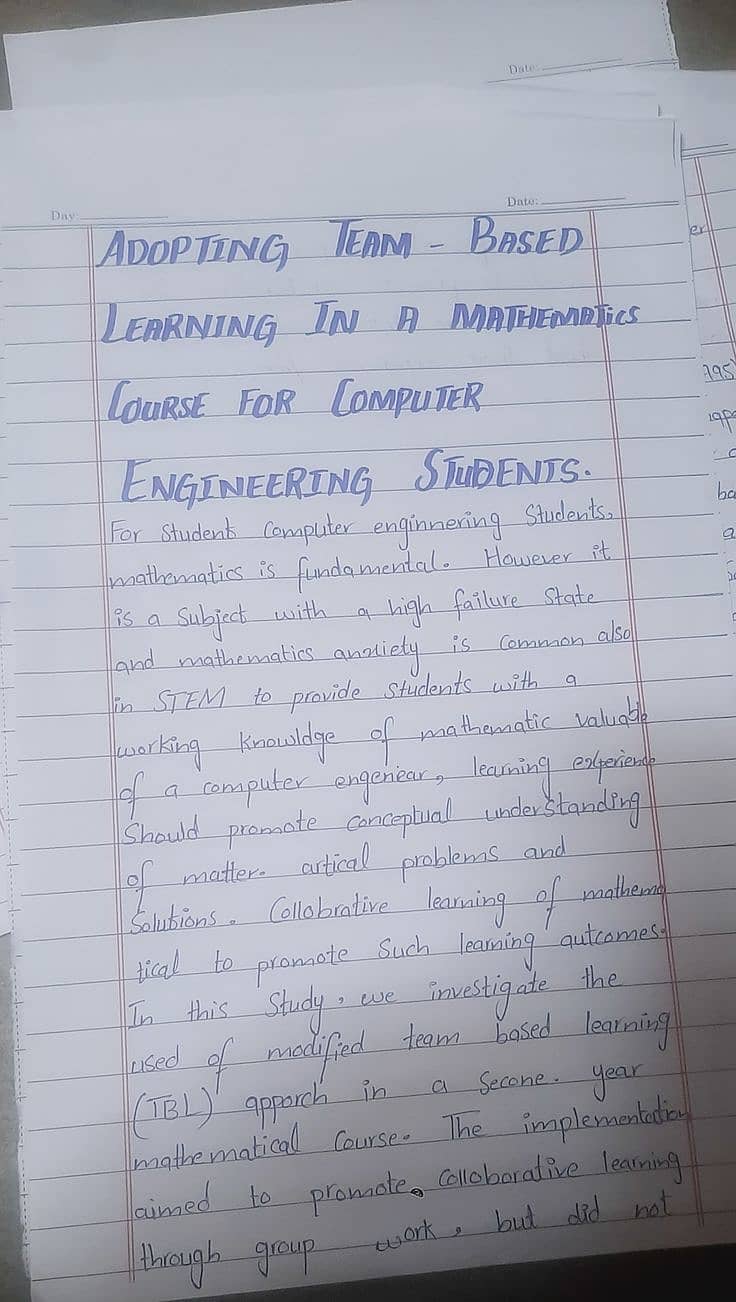 Date:
Day:
Date:
ADOPTING TEAM - BASED
LEARNING IN A MATHEMATICS
COURSE FOR COMPUTER
ENGINEERING STUDENTS.
For student computer enginnering students,
mathematics is fundamental. However it
is a subject with a high failure state
and mathematics anxiety is common also
in STEM to provide students with a
working knowldge of mathematic valuable
of a computer engeniear, learning experience
should promote conceptual understanding
of matter. artical problems and
solutions. Collobrative learning of mathema
tical to promote such learning outcomes.
In this study, we investigate the
used of modified team based learning
(TBL) apporch in a secone. year
mathematical course. The implementation
aimed to promote. colloborative learning
through group work, but did not
er